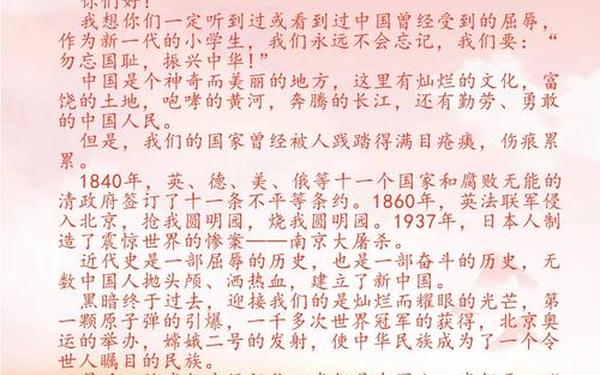 你们好！
我想你们一定听到过或看到过中国曾经受到的屈辱，
作为新一代的小学生，我们永远不会忘记，我们要：“
勿忘国耻，振兴中华！”
中国是个神奇而美丽的地方，这里有灿烂的文化，富
饶的土地，咆哮的黄河，奔腾的长江，还有勤劳、勇敢
的中国人民。
但是，我们的国家曾经被人践踏得满目疮痍，伤痕累
累。
1840年，英、德、美、俄等十一个国家和腐败无能的
清政府签订了十一条不平等条约。1860年，英法联军侵
入北京，抢我圆明园，烧我圆明园。1937年，日本人制
造了震惊世界的惨案——南京大屠杀。
近代史是一部屈辱的历史，也是一部奋斗的历史，无
数中国人抛头颅、洒热血，建立了新中国。
黑暗终于过去，迎接我们的是灿烂而耀眼的光芒，第
一颗原子弹的引爆，一千多次世界冠军的获得，北京奥
运的举办，嫦娥二号的发射，使中华民族成为了一个令
世人瞩目的民族。